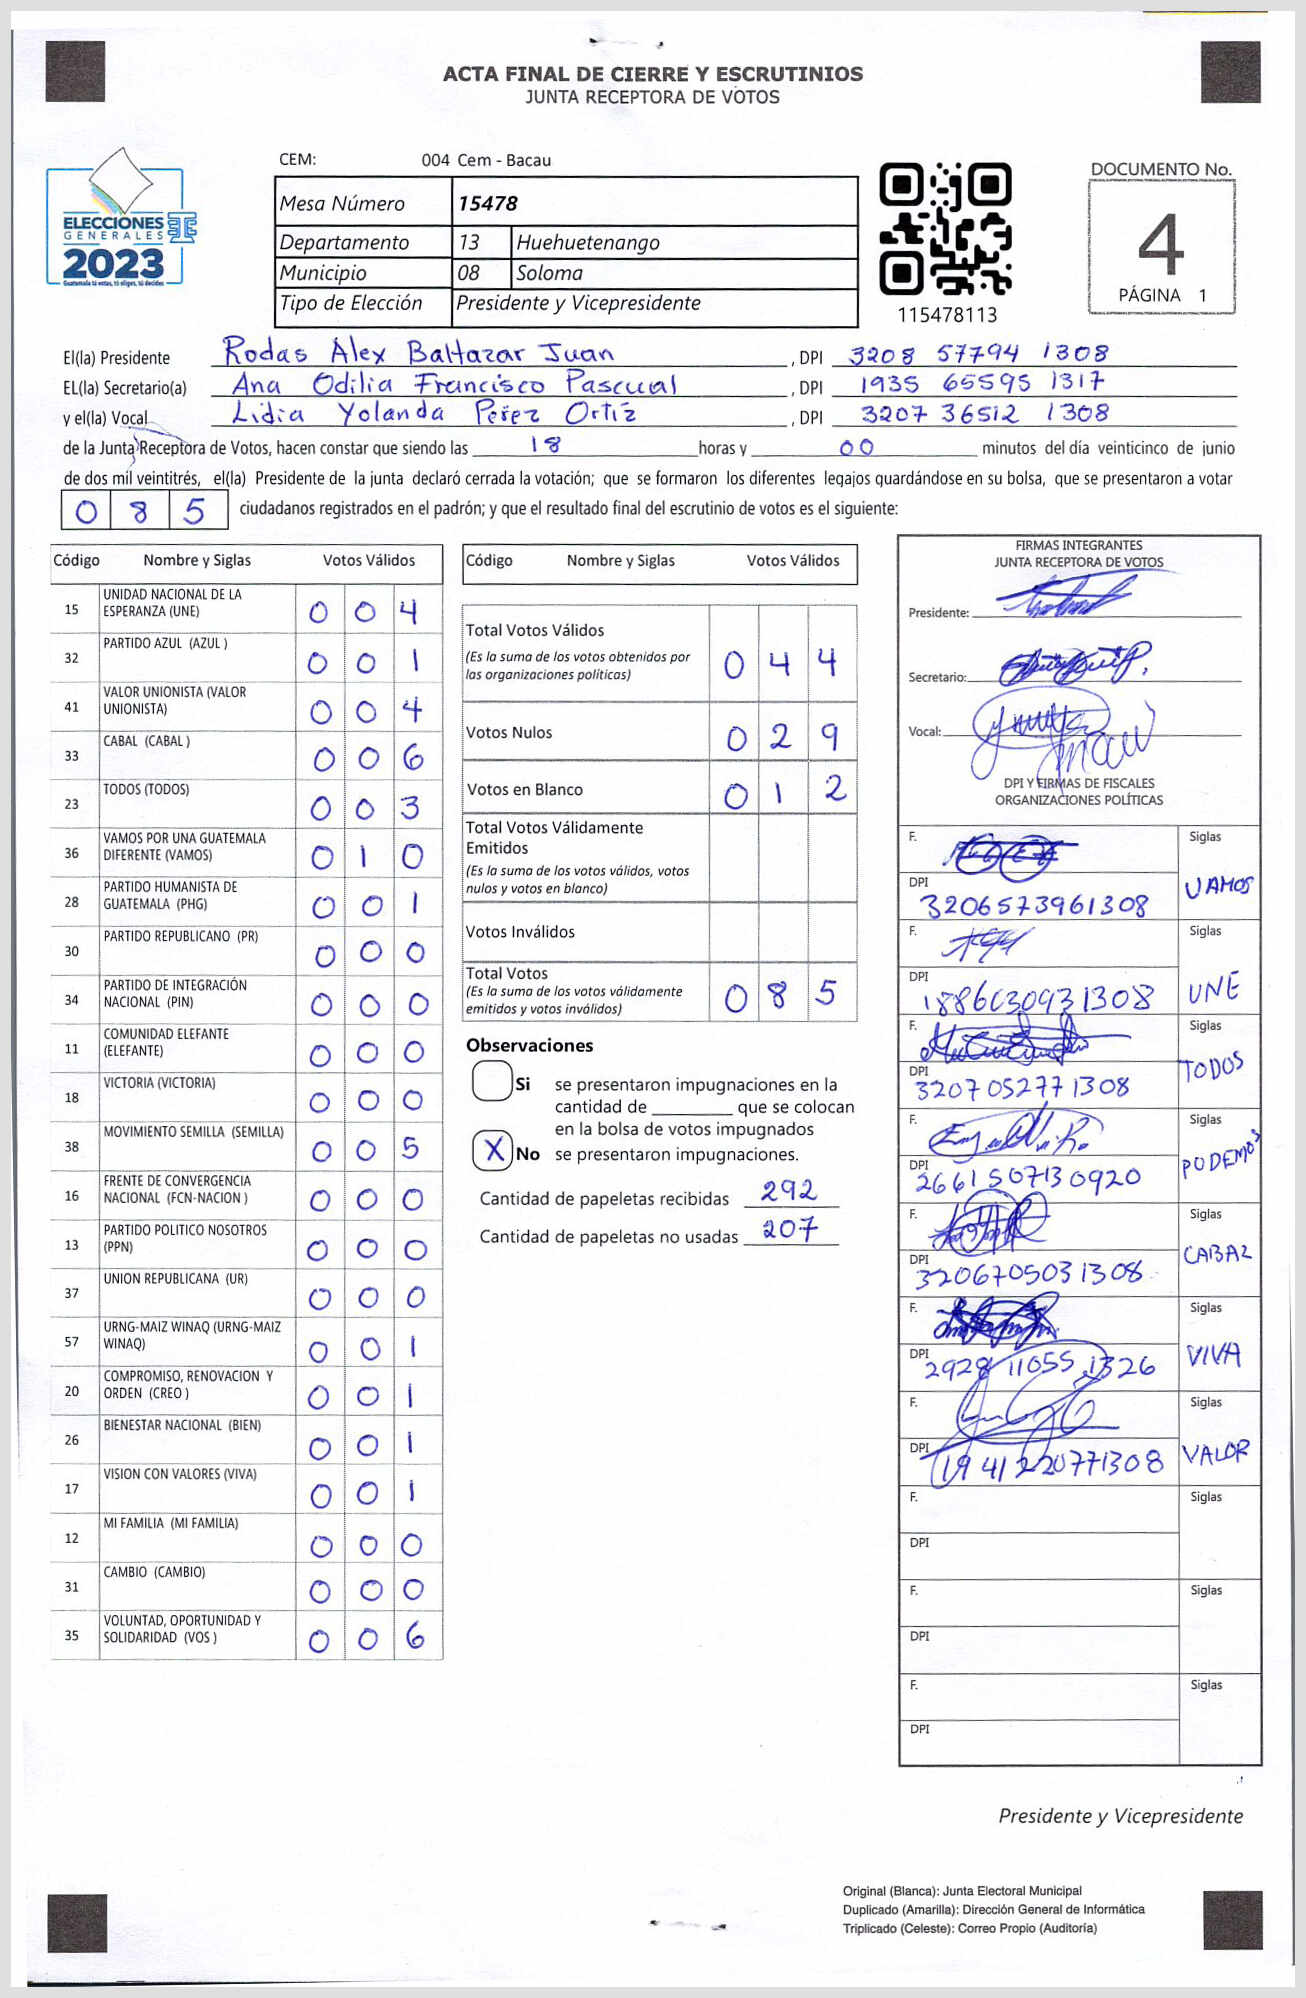 ACTA FINAL DE CIERRE Y ESCRUTINIOS
JUNTA RECEPTORA DE VOTOS
CEM: 004 Cem - Bacau
ELECCIONES
GENERALES
2023
Guatemala tú votas, tú eliges, tú decides
Mesa Número 15478
Departamento 13 Huehuetenango
Municipio 08 Soloma
Tipo de Elección Presidente y Vicepresidente
115478113
DOCUMENTO No.
4
PÁGINA 1
El(la) Presidente Rodas Alex Baltazar Juan , DPI 3208 57794 1308
EL(la) Secretario(a) Ana Odilia Francisco Pascual , DPI 1935 65595 1317
y el(la) Vocal Lidia Yolanda Perez Ortiz , DPI 3207 36512 1308
de la Junta Receptora de Votos, hacen constar que siendo las 18 horas y 00 minutos del día veinticinco de junio
de dos mil veintitrés, el(la) Presidente de la junta declaró cerrada la votación; que se formaron los diferentes legajos quardándose en su bolsa, que se presentaron a votar
0 8 5 ciudadanos registrados en el padrón; y que el resultado final del escrutinio de votos es el siguiente:
Código Nombre y Siglas Votos Válidos
15 UNIDAD NACIONAL DE LA
ESPERANZA (UNE) 0 0 4
32 PARTIDO AZUL (AZUL ) 0 0 1
41 VALOR UNIONISTA (VALOR
UNIONISTA) 0 0 4
33 CABAL (CABAL ) 0 0 6
23 TODOS (TODOS) 0 0 3
36 VAMOS POR UNA GUATEMALA
DIFERENTE (VAMOS) 0 1 0
28 PARTIDO HUMANISTA DE
GUATEMALA (PHG) 0 0 1
30 PARTIDO REPUBLICANO (PR) 0 0 0
34 PARTIDO DE INTEGRACIÓN
NACIONAL (PIN) 0 0 0
11 COMUNIDAD ELEFANTE
(ELEFANTE) 0 0 0
18 VICTORIA (VICTORIA) 0 0 0
38 MOVIMIENTO SEMILLA (SEMILLA) 0 0 5
16 FRENTE DE CONVERGENCIA
NACIONAL (FCN-NACION ) 0 0 0
13 PARTIDO POLITICO NOSOTROS
(PPN) 0 0 0
37 UNION REPUBLICANA (UR) 0 0 0
57 URNG-MAIZ WINAQ (URNG-MAIZ
WINAQ) 0 0 1
20 COMPROMISO, RENOVACION Y
ORDEN (CREO ) 0 0 1
26 BIENESTAR NACIONAL (BIEN) 0 0 1
17 VISION CON VALORES (VIVA) 0 0 1
12 MI FAMILIA (MI FAMILIA) 0 0 0
31 CAMBIO (CAMBIO) 0 0 0
35 VOLUNTAD, OPORTUNIDAD Y
SOLIDARIDAD (VOS ) 0 0 6
Código Nombre y Siglas Votos Válidos
Total Votos Válidos
(Es la suma de los votos obtenidos por
las organizaciones políticas) 0 4 4
Votos Nulos 0 2 9
Votos en Blanco 0 1 2
Total Votos Válidamente
Emitidos
(Es la suma de los votos válidos, votos
nulos y votos en blanco)
Votos Inválidos
Total Votos
(Es la suma de los votos válidamente
emitidos y votos inválidos) 0 8 5
Observaciones
Si se presentaron impugnaciones en la
cantidad de ________ que se colocan
en la bolsa de votos impugnados
X No se presentaron impugnaciones.
Cantidad de papeletas recibidas 292
Cantidad de papeletas no usadas 207
FIRMAS INTEGRANTES
JUNTA RECEPTORA DE VOTOS
Presidente:
Secretario:
Vocal:
DPI Y FIRMAS DE FISCALES
ORGANIZACIONES POLÍTICAS
F. Siglas
DPI 3206573961308 VAMOS
F. Siglas
DPI 1886030931308 UNE
F. Siglas
DPI 3207052771308 TODOS
F. Siglas
DPI 2661507130920 PODEMOS
F. Siglas
DPI 3206705031308 CABAL
F. Siglas
DPI 2928 11055 1326 VIVA
F. Siglas
DPI 1941220771308 VALOR
F. Siglas
DPI
F. Siglas
DPI
F. Siglas
DPI
Presidente y Vicepresidente
Original (Blanca): Junta Electoral Municipal
Duplicado (Amarilla): Dirección General de Informática
Triplicado (Celeste): Correo Propio (Auditoría)